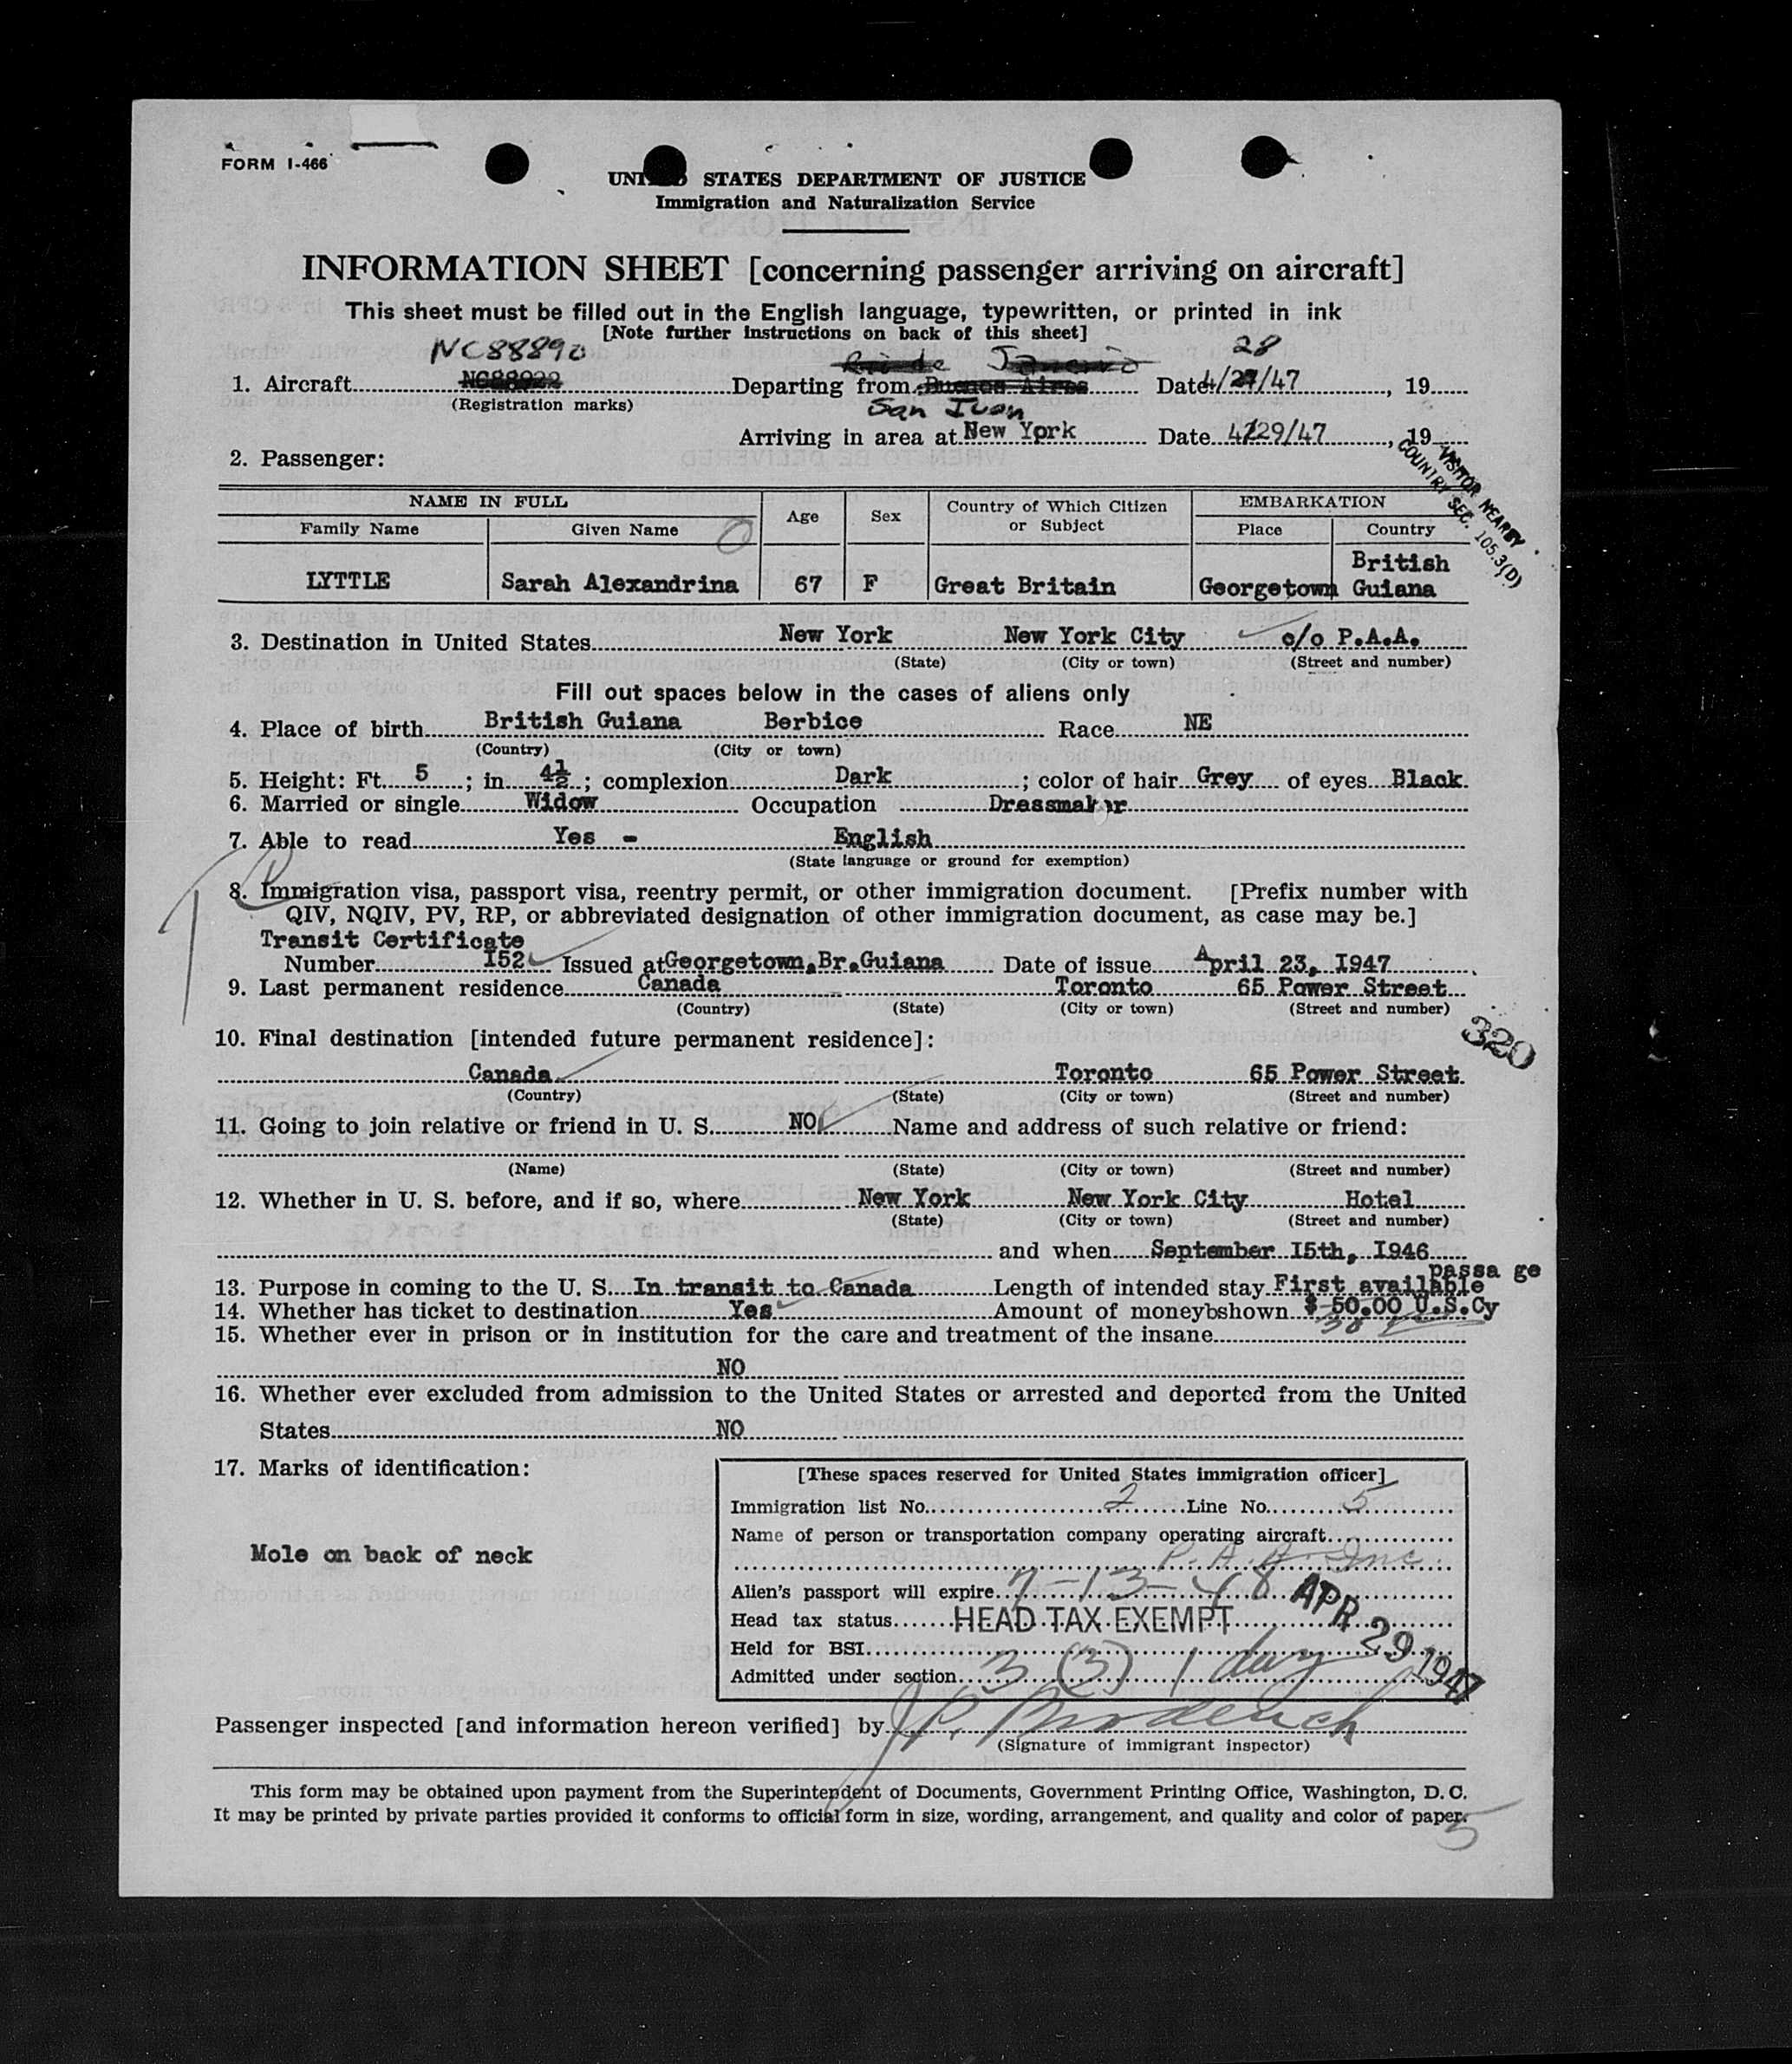 FORM I-466
UNITED STATES DEPARTMENT OF JUSTICE
Immigration and Naturalization Service
INFORMATION SHEET [concerning passenger arriving on aircraft]
This sheet must be filled out in the English language, typewritten, or printed in ink
[Note further instructions on back of this sheet]
NC88890 Rio de Janeiro 28
1. Aircraft NC88922 Departing from Buenos Aires Date 4/27/47, 19
(Registration marks) San Juan
Arriving in area at New York Date 4/29/47, 19
VISITOR NEARBY
COUNTRY SEC. 105.3(D)
2. Passenger:
NAME IN FULL Age Sex Country of Which Citizen or Subject EMBARKATION
Family Name Given Name Place Country
LYTTLE Sarah Alexandrina 67 F Great Britain Georgetown British Guiana
3. Destination in United States New York New York City c/o P.A.A.
(State) (City or town) (Street and number)
Fill out spaces below in the cases of aliens only
4. Place of birth British Guiana Berbice Race NE
(Country) (City or town)
5. Height: Ft. 5; in 4½; complexion Dark; color of hair Grey of eyes Black
6. Married or single Widow Occupation Dressmaker
7. Able to read Yes - English
(State language or ground for exemption)
8. Immigration visa, passport visa, reentry permit, or other immigration document. [Prefix number with
QIV, NQIV, PV, RP, or abbreviated designation of other immigration document, as case may be.]
Transit Certificate
Number I52 Issued at Georgetown, Br.Guiana Date of issue April 23, I947
9. Last permanent residence Canada Toronto 65 Power Street
(Country) (State) (City or town) (Street and number)
320
10. Final destination [intended future permanent residece]:
Canada Toronto 65 Power Street
(Country) (State) (City or town) (Street and number)
11. Going to join relative or friend in U. S. NO Name and address of such relative or friend:
(Name) (State) (City or town) (Street and number)
12. Whether in U. S. before, and if so, where New York New York City Hotel
(State) (City or town) (Street and number)
and when September I5th, I946
13. Purpose in coming to the U. S. In transit to Canada Length of intended stay First available passa ge
14. Whether has ticket to destination Yes Amount of moneybshown $ 50.00 U.S.Cy
15. Whether ever in prison or in institution for the care and treatment of the insane
NO
16. Whether ever excluded from admission to the United States or arrested and deported from the United
States NO
17. Marks of identification:
Mole on back of neck
[These spaces reserved for United States immigration officer]
Immigration list No. 2 Line No. 5
Name of person or transportation company operating aircraft
P.A.A. Inc.
Alien's passport will expire 7-13-48
Head tax status HEAD TAX EXEMPT
Held for BSI
Admitted under section 3 (3) 1 day
APR 29 1947
Passenger inspected [and information hereon verified] by
(Signature of immigrant inspector)
This form may be obtained upon payment from the Superintendent of Documents, Government Printing Office, Washington, D. C.
It may be printed by private parties provided it conforms to official form in size, wording, arrangement, and quality and color of paper.
5